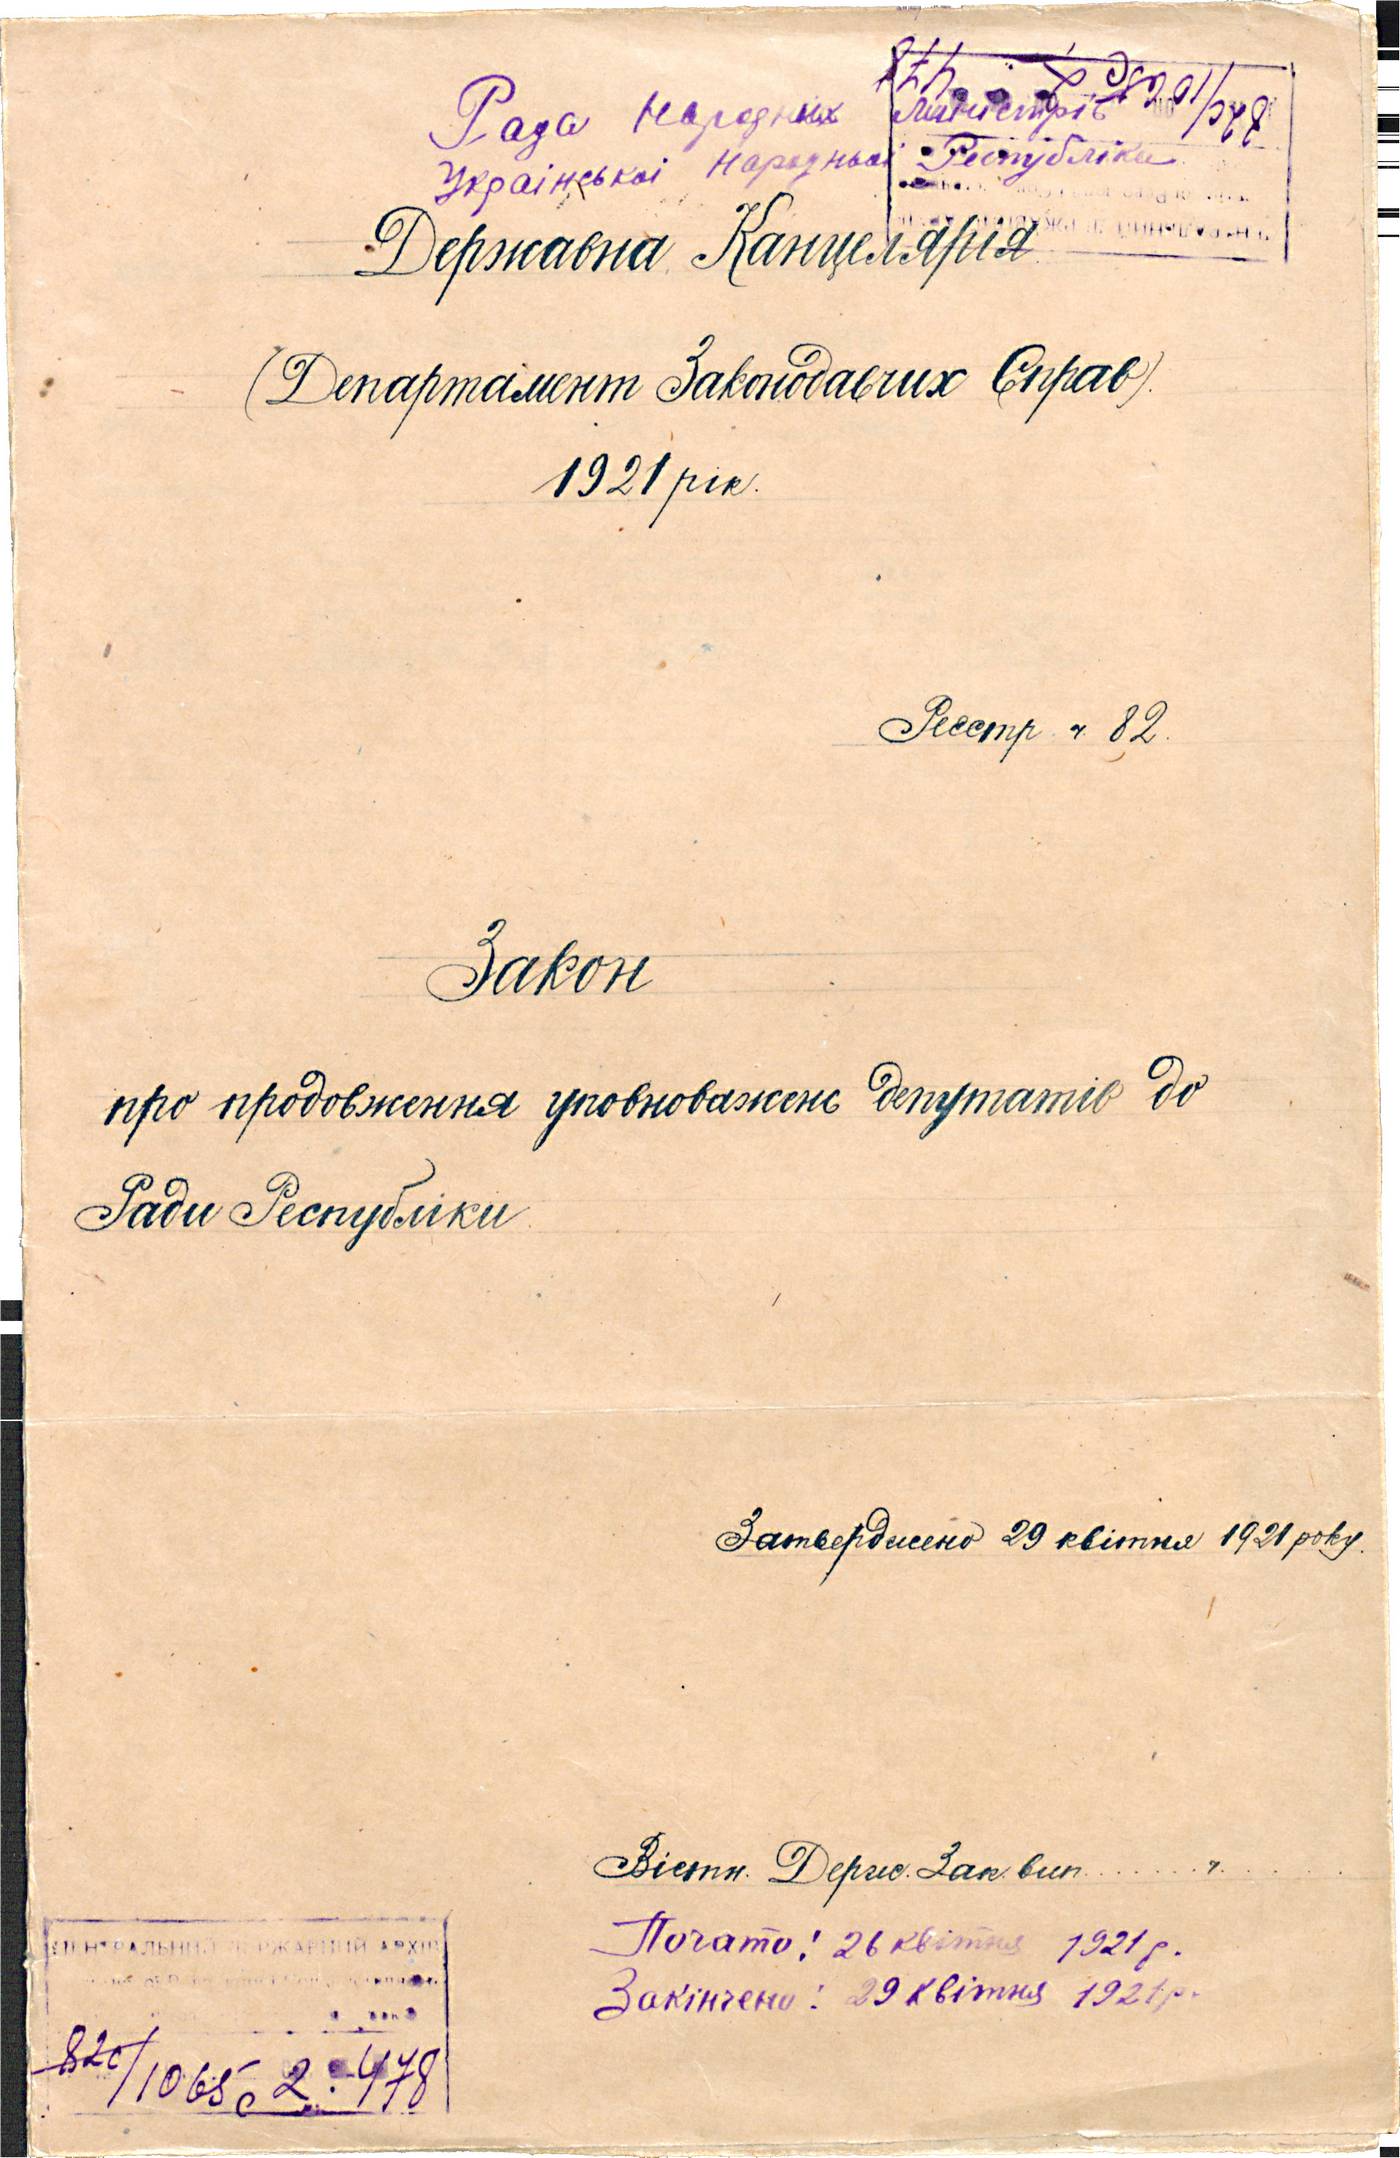 Рада Народних Міністрів
Української Народньої Республіки
Державна Канцелярія
(Департамент Законодавчих Справ).
1921 рік.
Реєстр ч. 82.
Закон
про продовження уповноважень депутатів до
Ради Республіки
Затверджено 29 квітня 1921 року.
Вістн. Держ. Зак. вип. ...... ч. ......
Почато: 26 квітня 1921 р.
Закінчено: 29 квітня 1921 р.
ЦЕНТРАЛЬНИЙ ДЕРЖАВНИЙ АРХІВ
82с/1065с 2 478